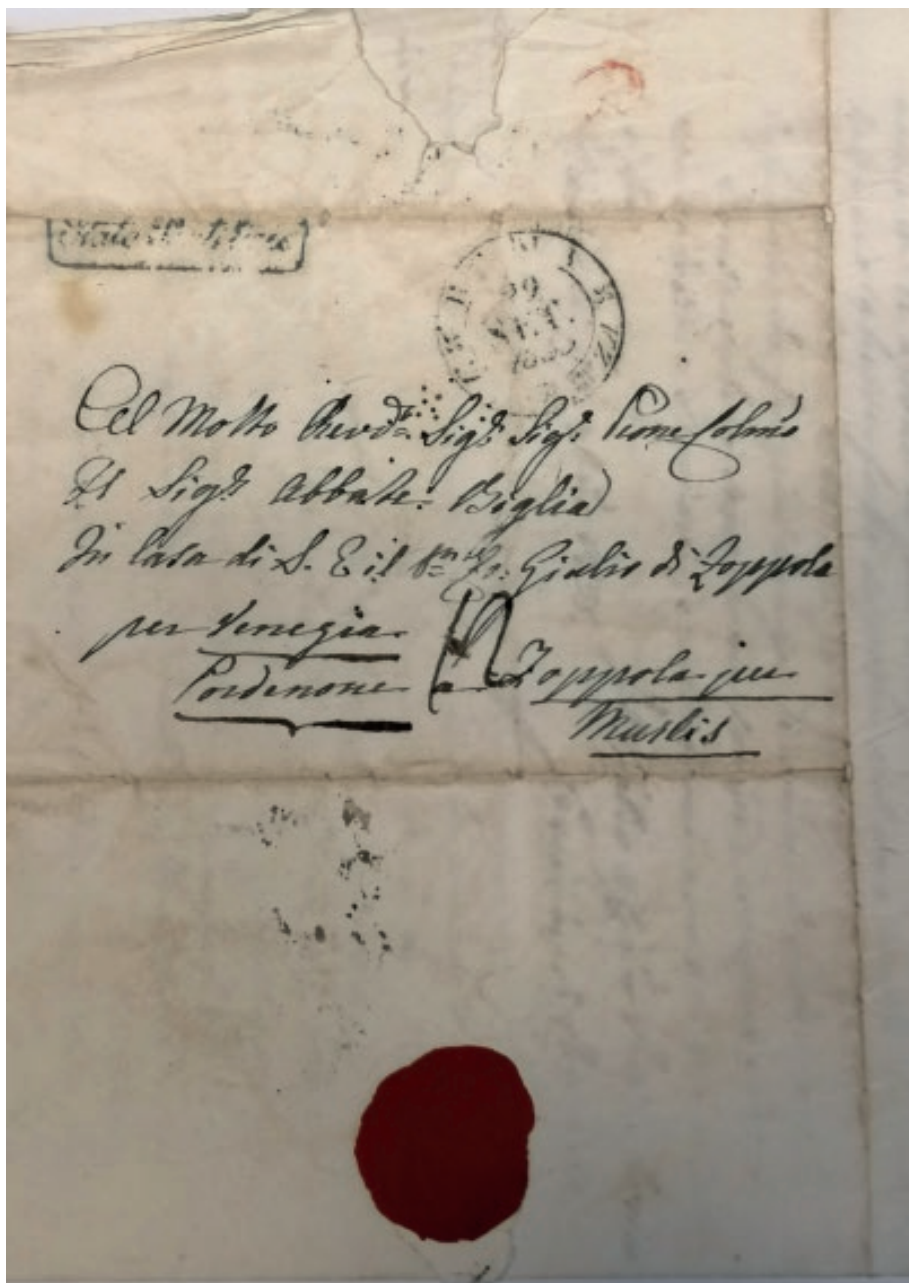 Stato
29
SET.
Al Molto Revd.º Sigr. Sigr. Prone Colmo
Il Sigr. Abbate: Biglia
In Casa di S. E il Giulio di Zoppola
per Venezia
12
Pordenone a Zoppola per
Murlis